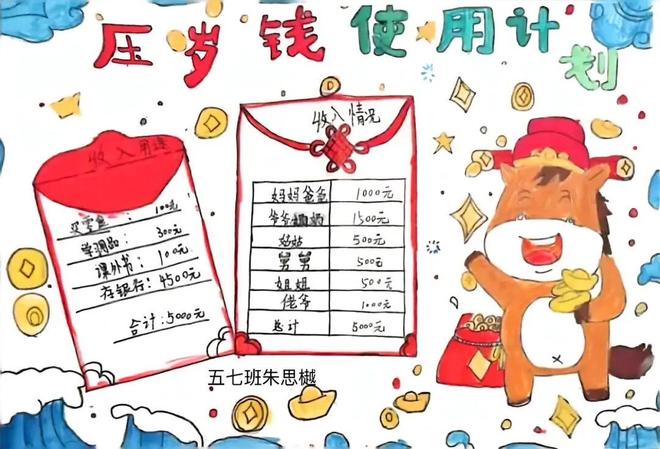 压岁钱使用计划
收入用途
买零食：100元
学习用品：300元
课外书：100元
存银行：4500元
合计：5000元
收入情况
妈妈爸爸 1000元
爷爷奶奶 1500元
姑姑 500元
舅舅 500元
姐姐 500元
佬爷 1000元
总计 5000元
五七班朱思樾